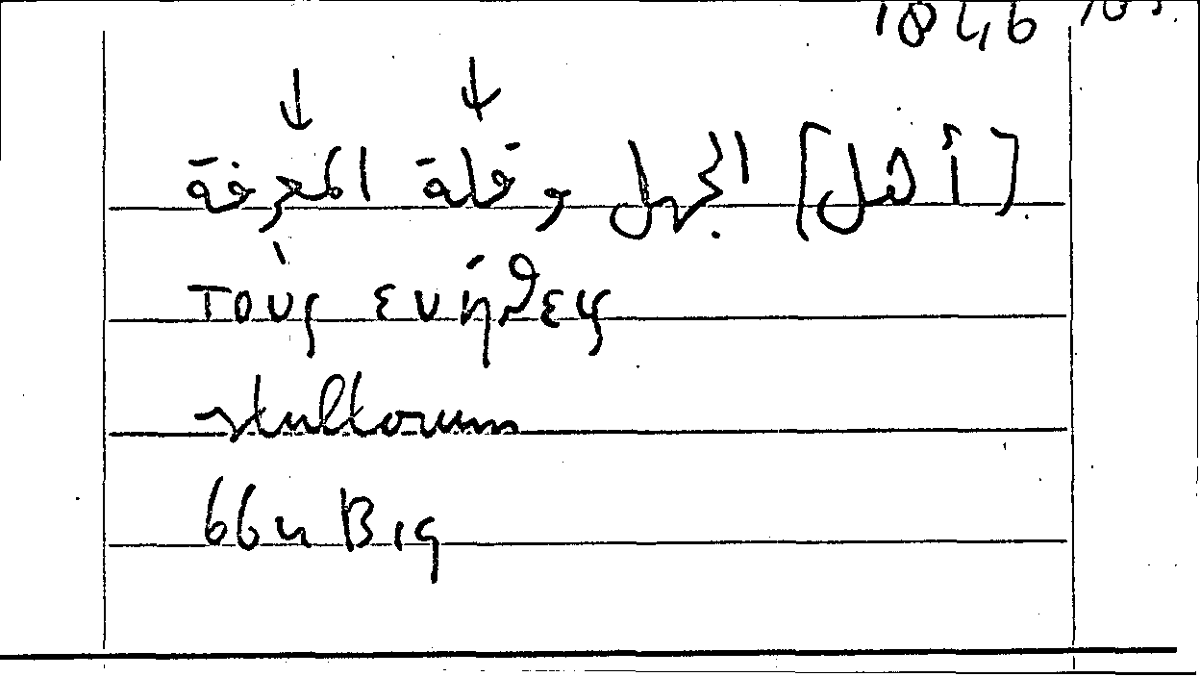 [أهل] الجهل وقلة المعرفة
τοὺς ευήθεις
stultorum
66u B19